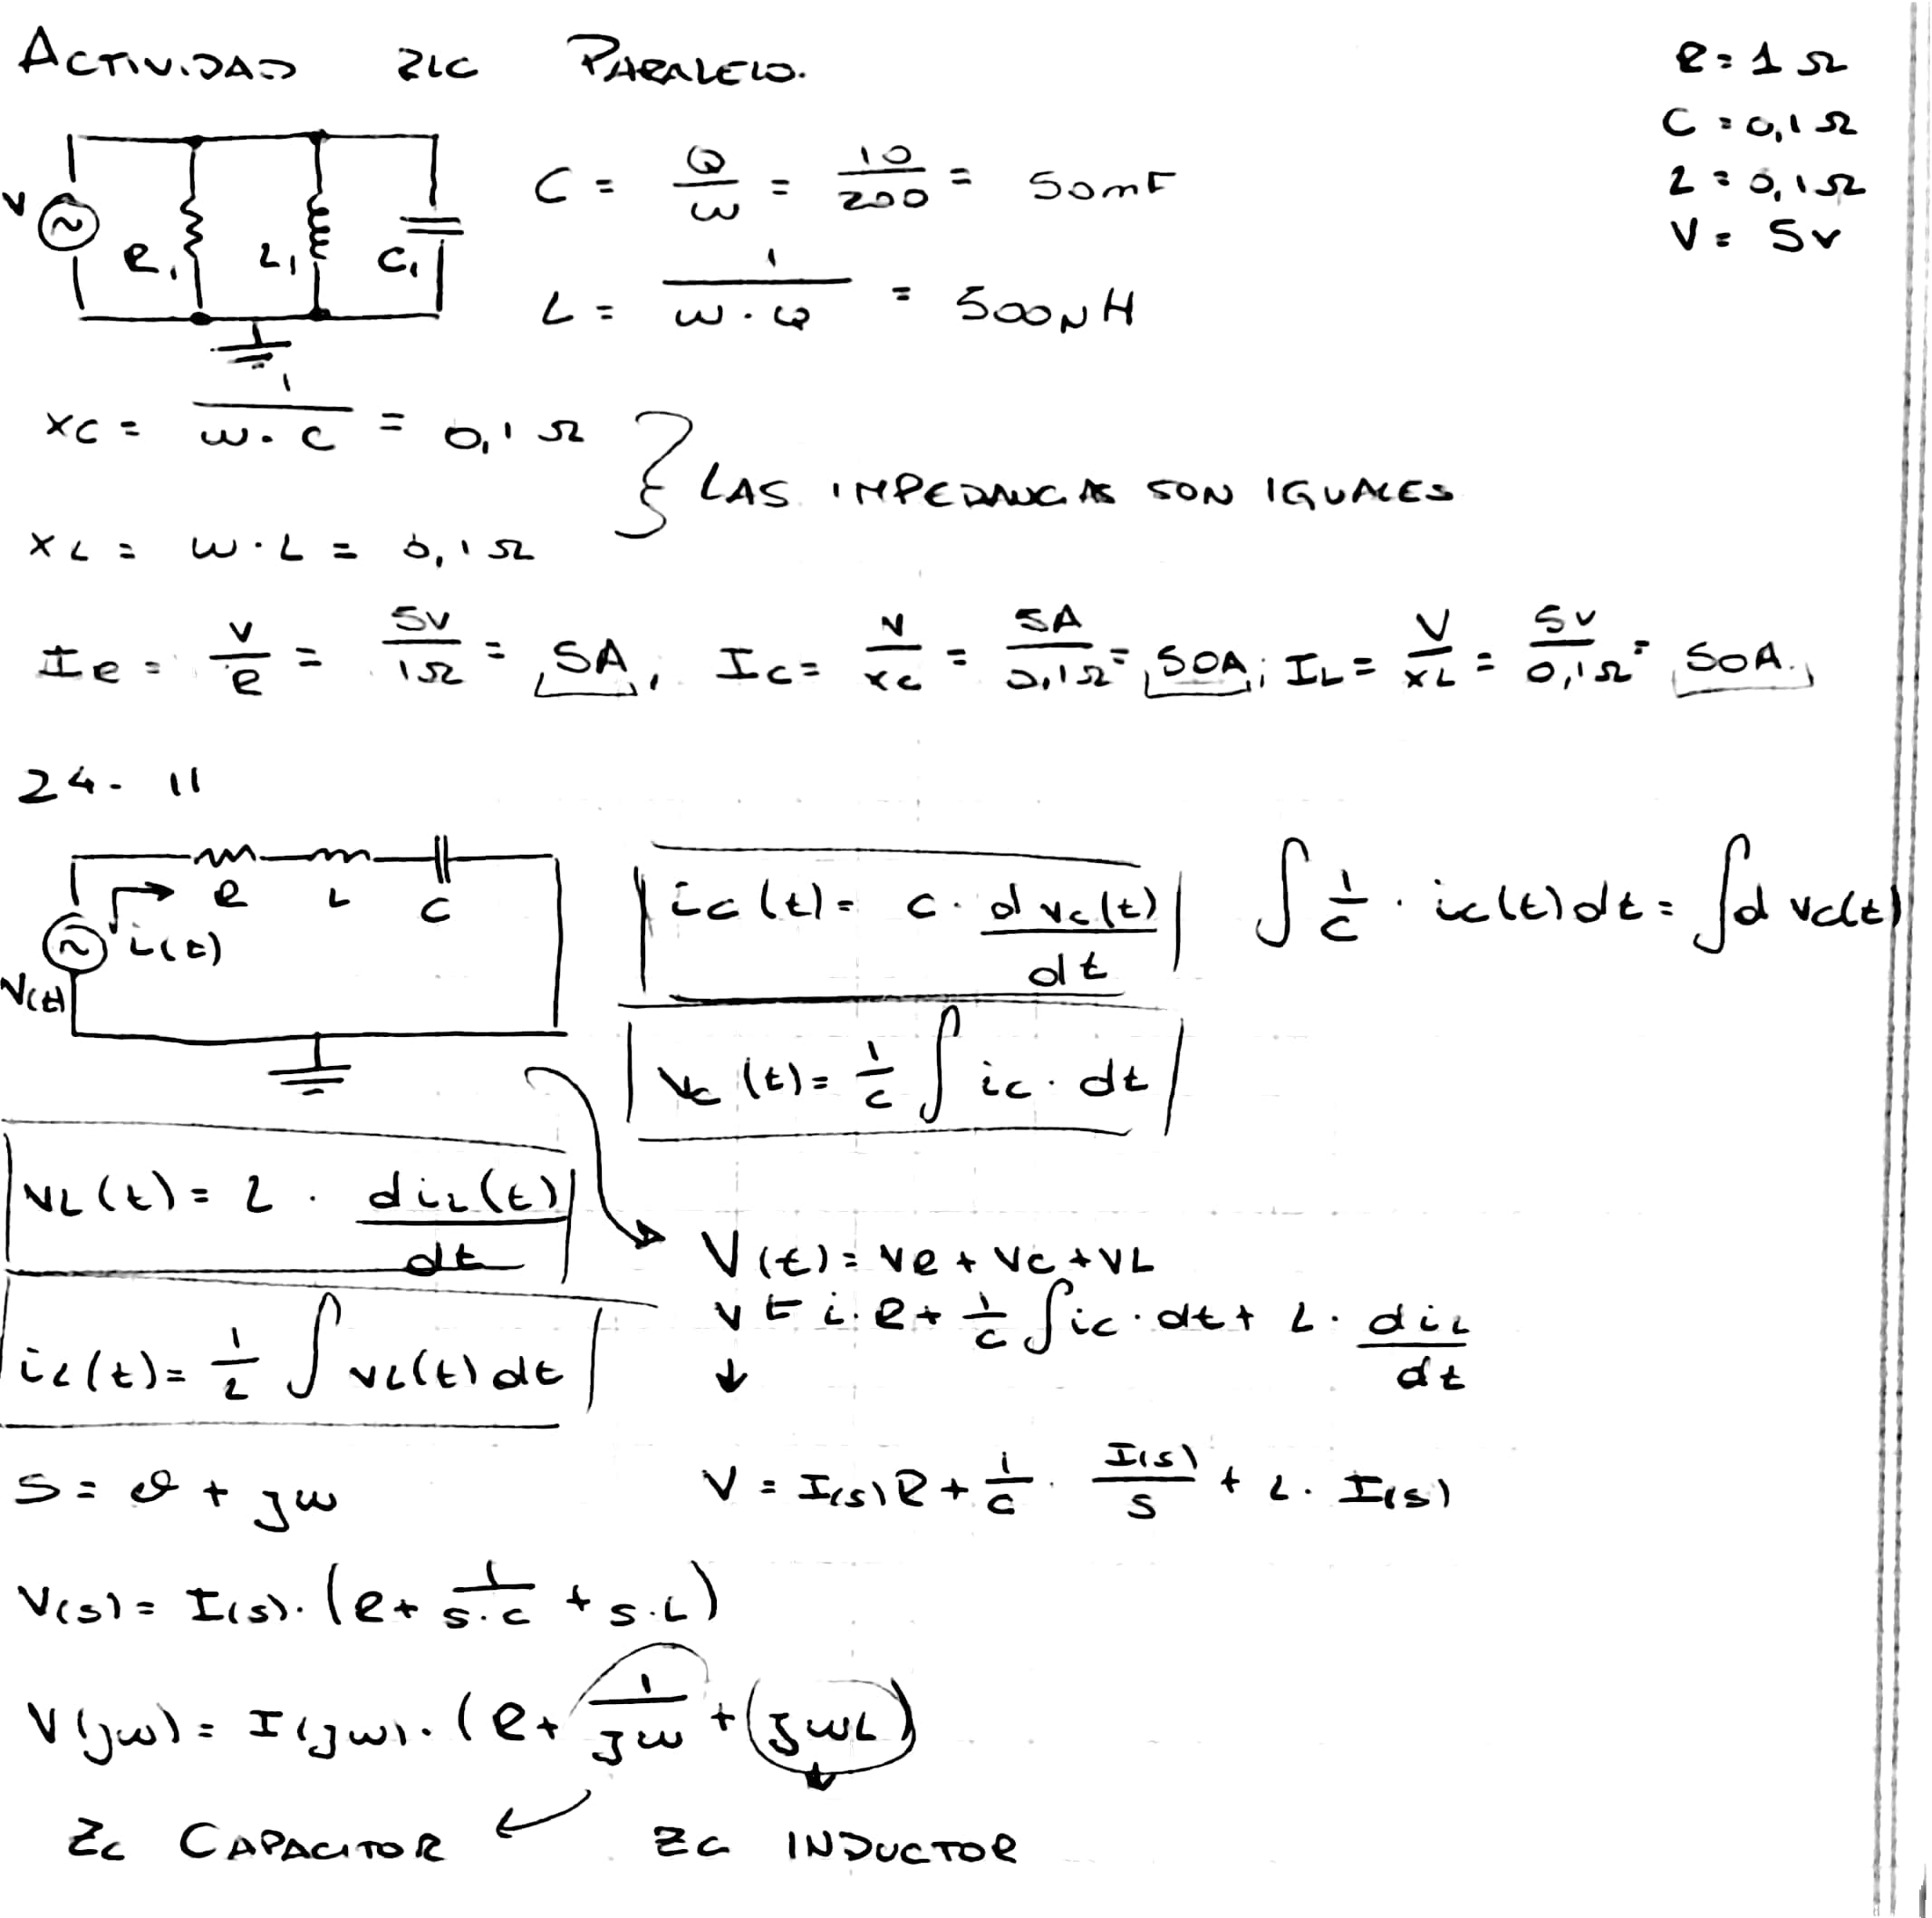 ACTIVIDAD RLC PARALELO.
R = 1 Ω
C = 0,1 Ω
L = 0,1 Ω
V = 5v
V R1 L1 C1
C = Q/ω = 10/200 = 50mF
L = 1/(ω · Q) = 500µH
XC = 1/(ω · C) = 0,1 Ω
LAS IMPEDANCAS SON IGUALES
XL = ω · L = 0,1 Ω
IR = V/R = 5V/1Ω = 5A, IC = V/XC = 5A/0,1Ω = 50A; IL = V/XL = 5V/0,1Ω = 50A.
24 - 11
R L C
i(t)
V(t)
ic(t) = C · d vc(t)/dt
∫ 1/C · ic(t) dt = ∫ d vc(t)
vc(t) = 1/C ∫ ic · dt
VL(t) = L · diL(t)/dt
V(t) = VR + VC + VL
iL(t) = 1/L ∫ VL(t) dt
V t i · R + 1/C ∫ ic · dt + L · diL/dt
S = σ + jω
V = I(s) R + 1/C · I(s)/S + L · I(s)
V(s) = I(s) · (R + 1/(S·C) + S·L)
V(jω) = I(jω) · (R + 1/jω + (jωL)
ZC CAPACITOR ZC INDUCTOR